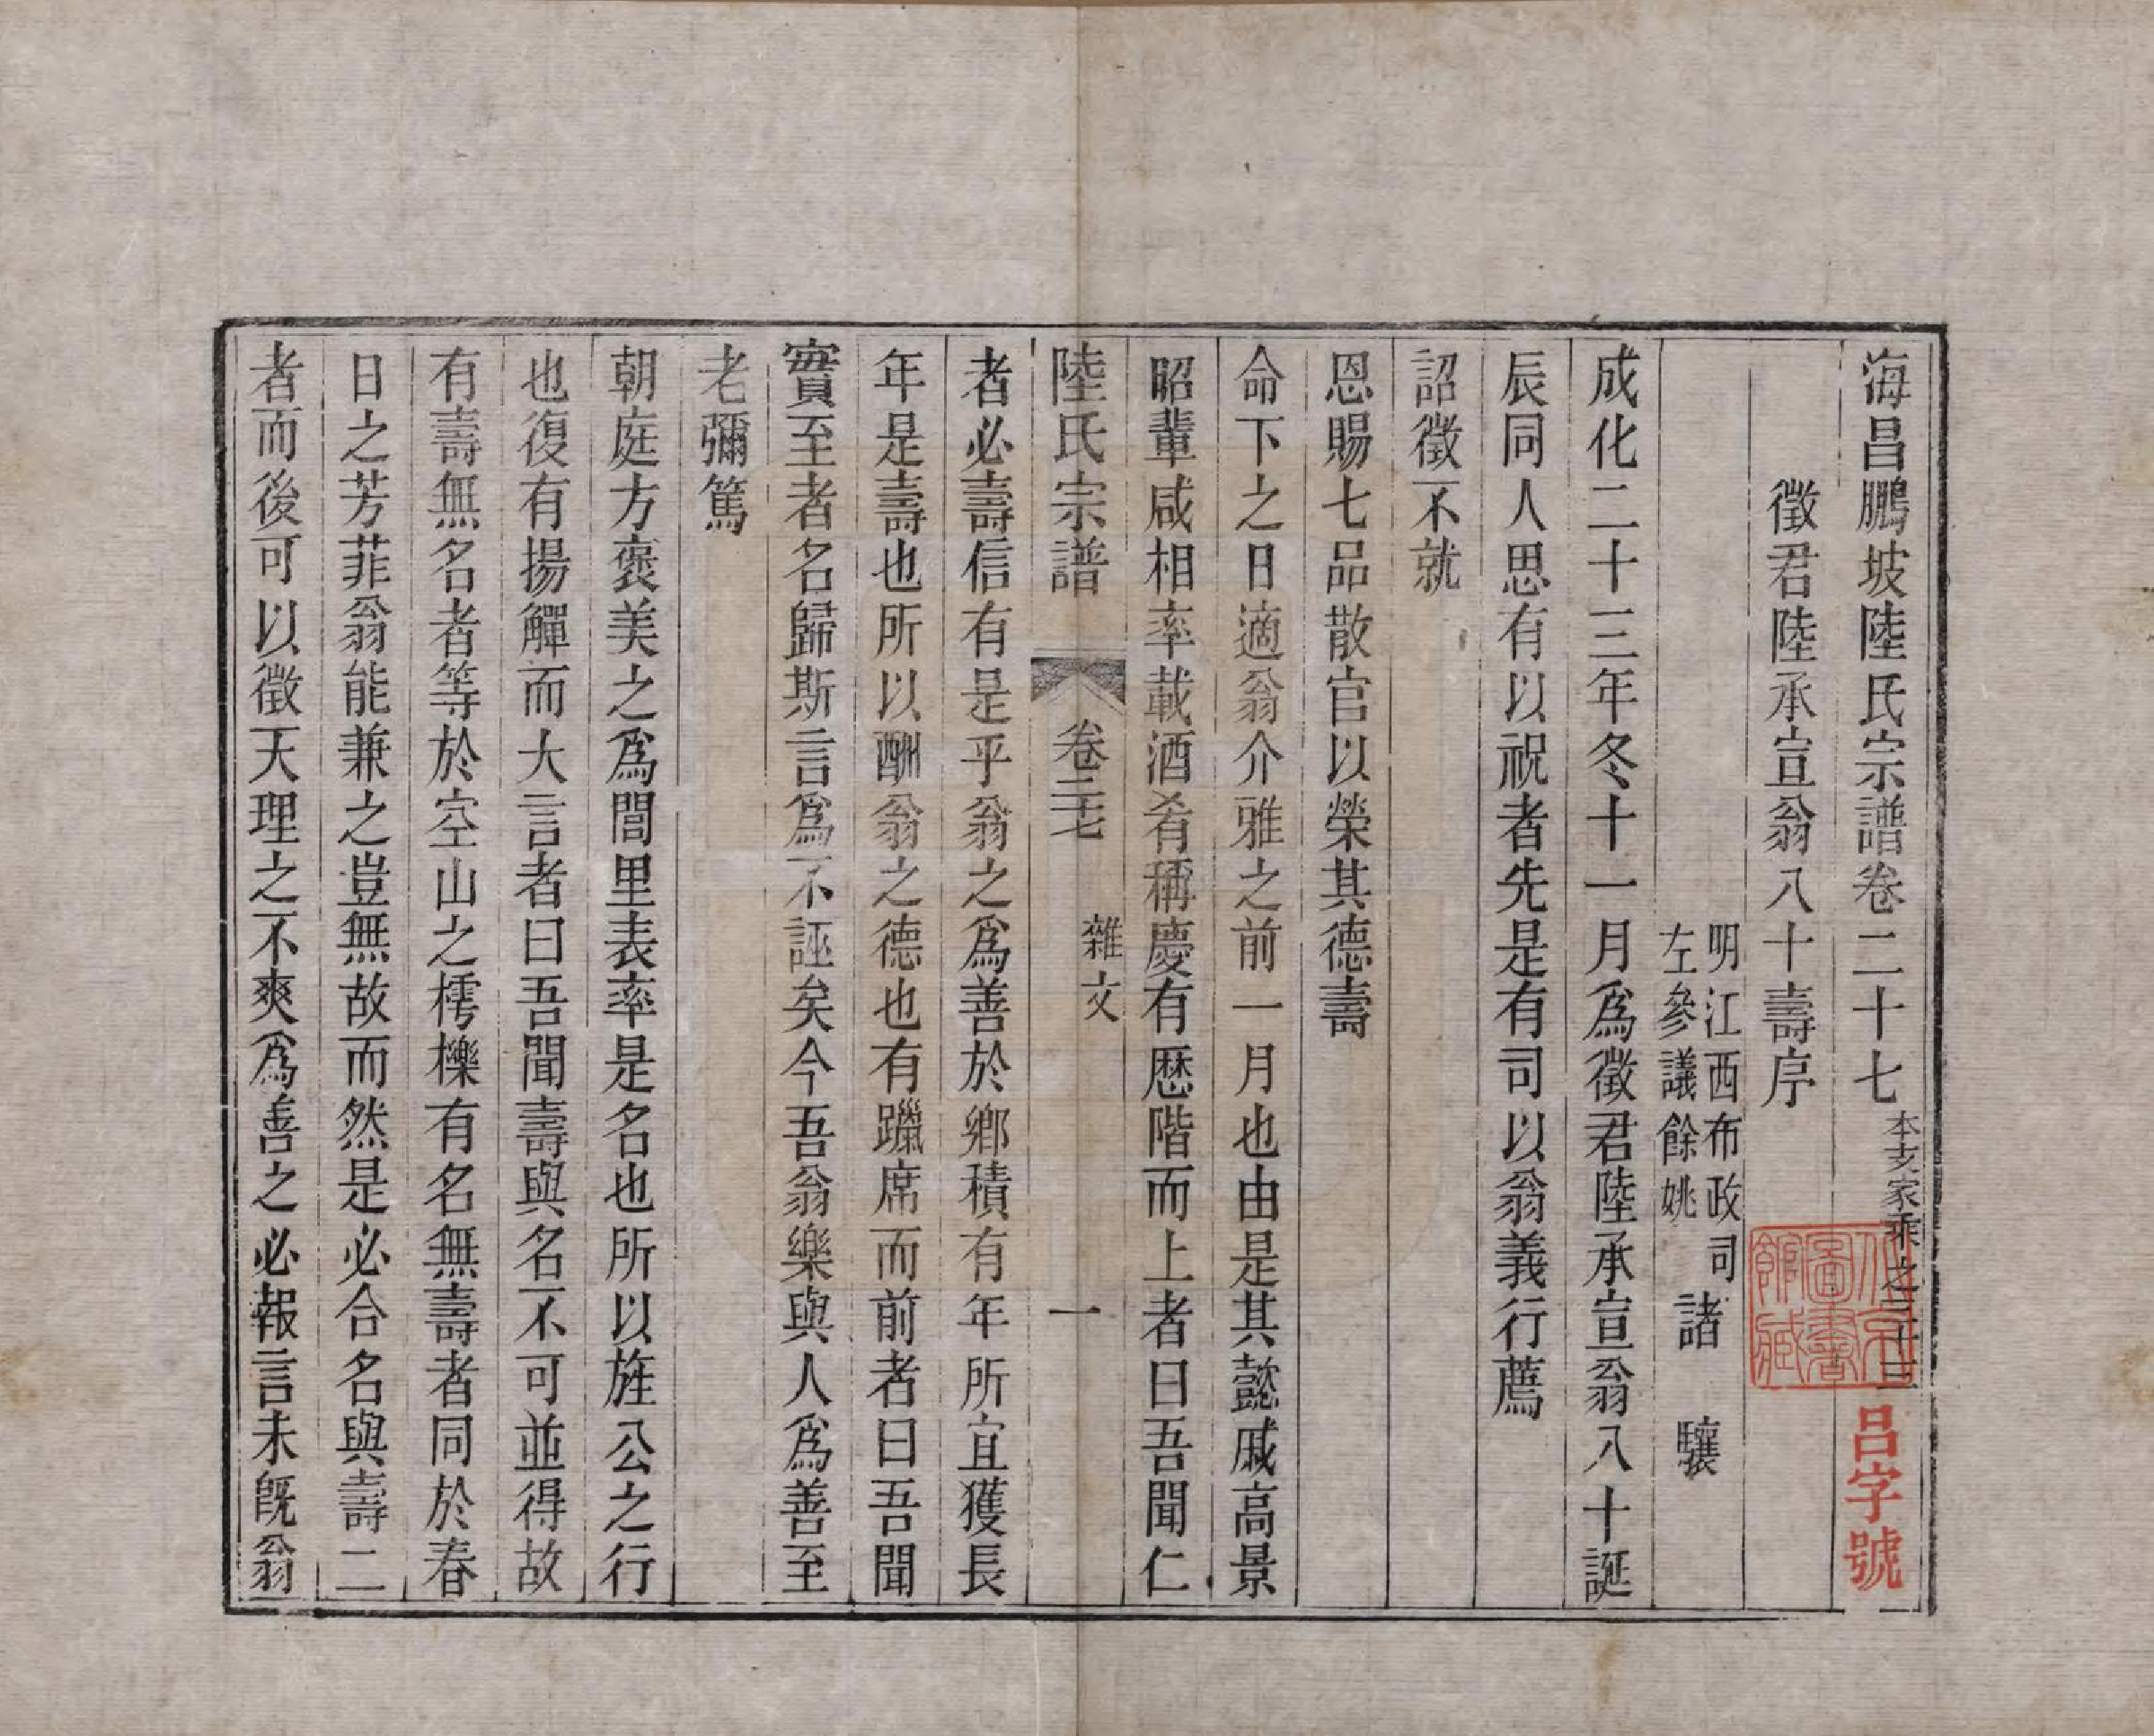 海昌鵬坡陸氏宗譜卷二十七 本支家乘之二十三
呂字號
徵君陸承宣翁八十壽序
明江西布政司
左參議餘姚
諸驤
成化二十三年冬十一月爲徵君陸承宣翁八十誕
辰同人思有以祝者先是有司以翁義行薦
詔徵不就
恩賜七品散官以榮其德壽
命下之日適翁介雅之前一月也由是其懿戚高景
昭輩咸相率載酒肴稱慶有歷階而上者曰吾聞仁
陸氏宗譜 卷二十七 雜文 一
者必壽信有是乎翁之爲善於鄉積有年所宜獲長
年是壽也所以酬翁之德也有躐席而前者曰吾聞
實至者名歸斯言爲不誣矣今吾翁樂與人爲善至
老彌篤
朝庭方褒美之爲閭里表率是名也所以旌公之行
也復有揚觶而大言者曰吾聞壽與名不可並得故
有壽無名者等於空山之樗櫟有名無壽者同於春
日之芳菲翁能兼之豈無故而然是必合名與壽二
者而後可以徵天理之不爽爲善之必報言未既翁